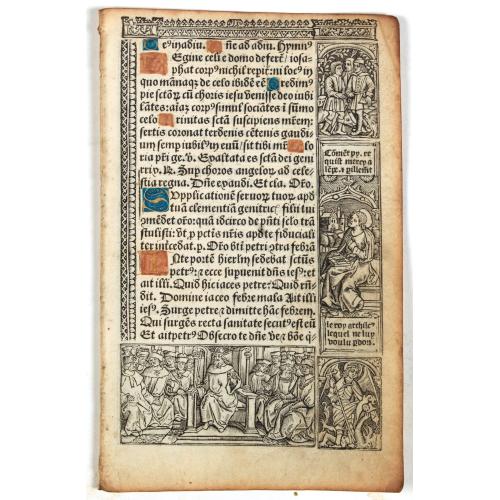 e⁹ in adiu. ñe ad adiu. Hymn⁹
Egine celi e domo deferẽt iosa-
phat corp⁹ nichil reppir: ni loc⁹ in
quo mãnaq: de celo ibidẽ rẽ Credim⁹
pie sctõꝝ cũ choris iesũ venisse deo iubi
lãtes: aiaꝫ corp⁹ simul sociãtes ĩ sũmo
celo Trinitas sctã suscipiens mr̃em:
sertis coronat terdenis cẽtenis gaudi
um semp iubil⁹ in euũ / sit tibi mr̃ glo
ria pr̃i ge. v. Exaltata es sctã dei geni
trix. R. Sup choros angeloꝝ ad cele-
stia regna. Dñe exaudi. Et cla. Orõ.
Supplicationẽ seruoꝝ tuoꝝ apd
tuã clementiã genitric⁹ filii tui
cõmẽdet orõ: quã idcirco de pñti sclo trã
stulisti: vt p pctis nr̃is apđte fiduciali
ter intcedat. p. Orõ bti petri ɔtra febrã
Ante portẽ hierlm sedebat sctũs
petr⁹: ⁊ ecce supuenit dñs ies⁹: et
ait illi. Quid hic iaces petre: Quid rñ-
dit. Domine iaceo febre mala Ait illi
ies⁹. Surge petre ⁊ dimitte hãc febrem.
Qui surgẽs recta sanitate secut⁹ est eũ
Et ait petr⁹ Obsecro te dñe vt ⁊ hõe q
Cõmẽt py. re
quist mercy a
lẽpe. a
le roy archile⁹
lequel ne luy
voulu pdon.